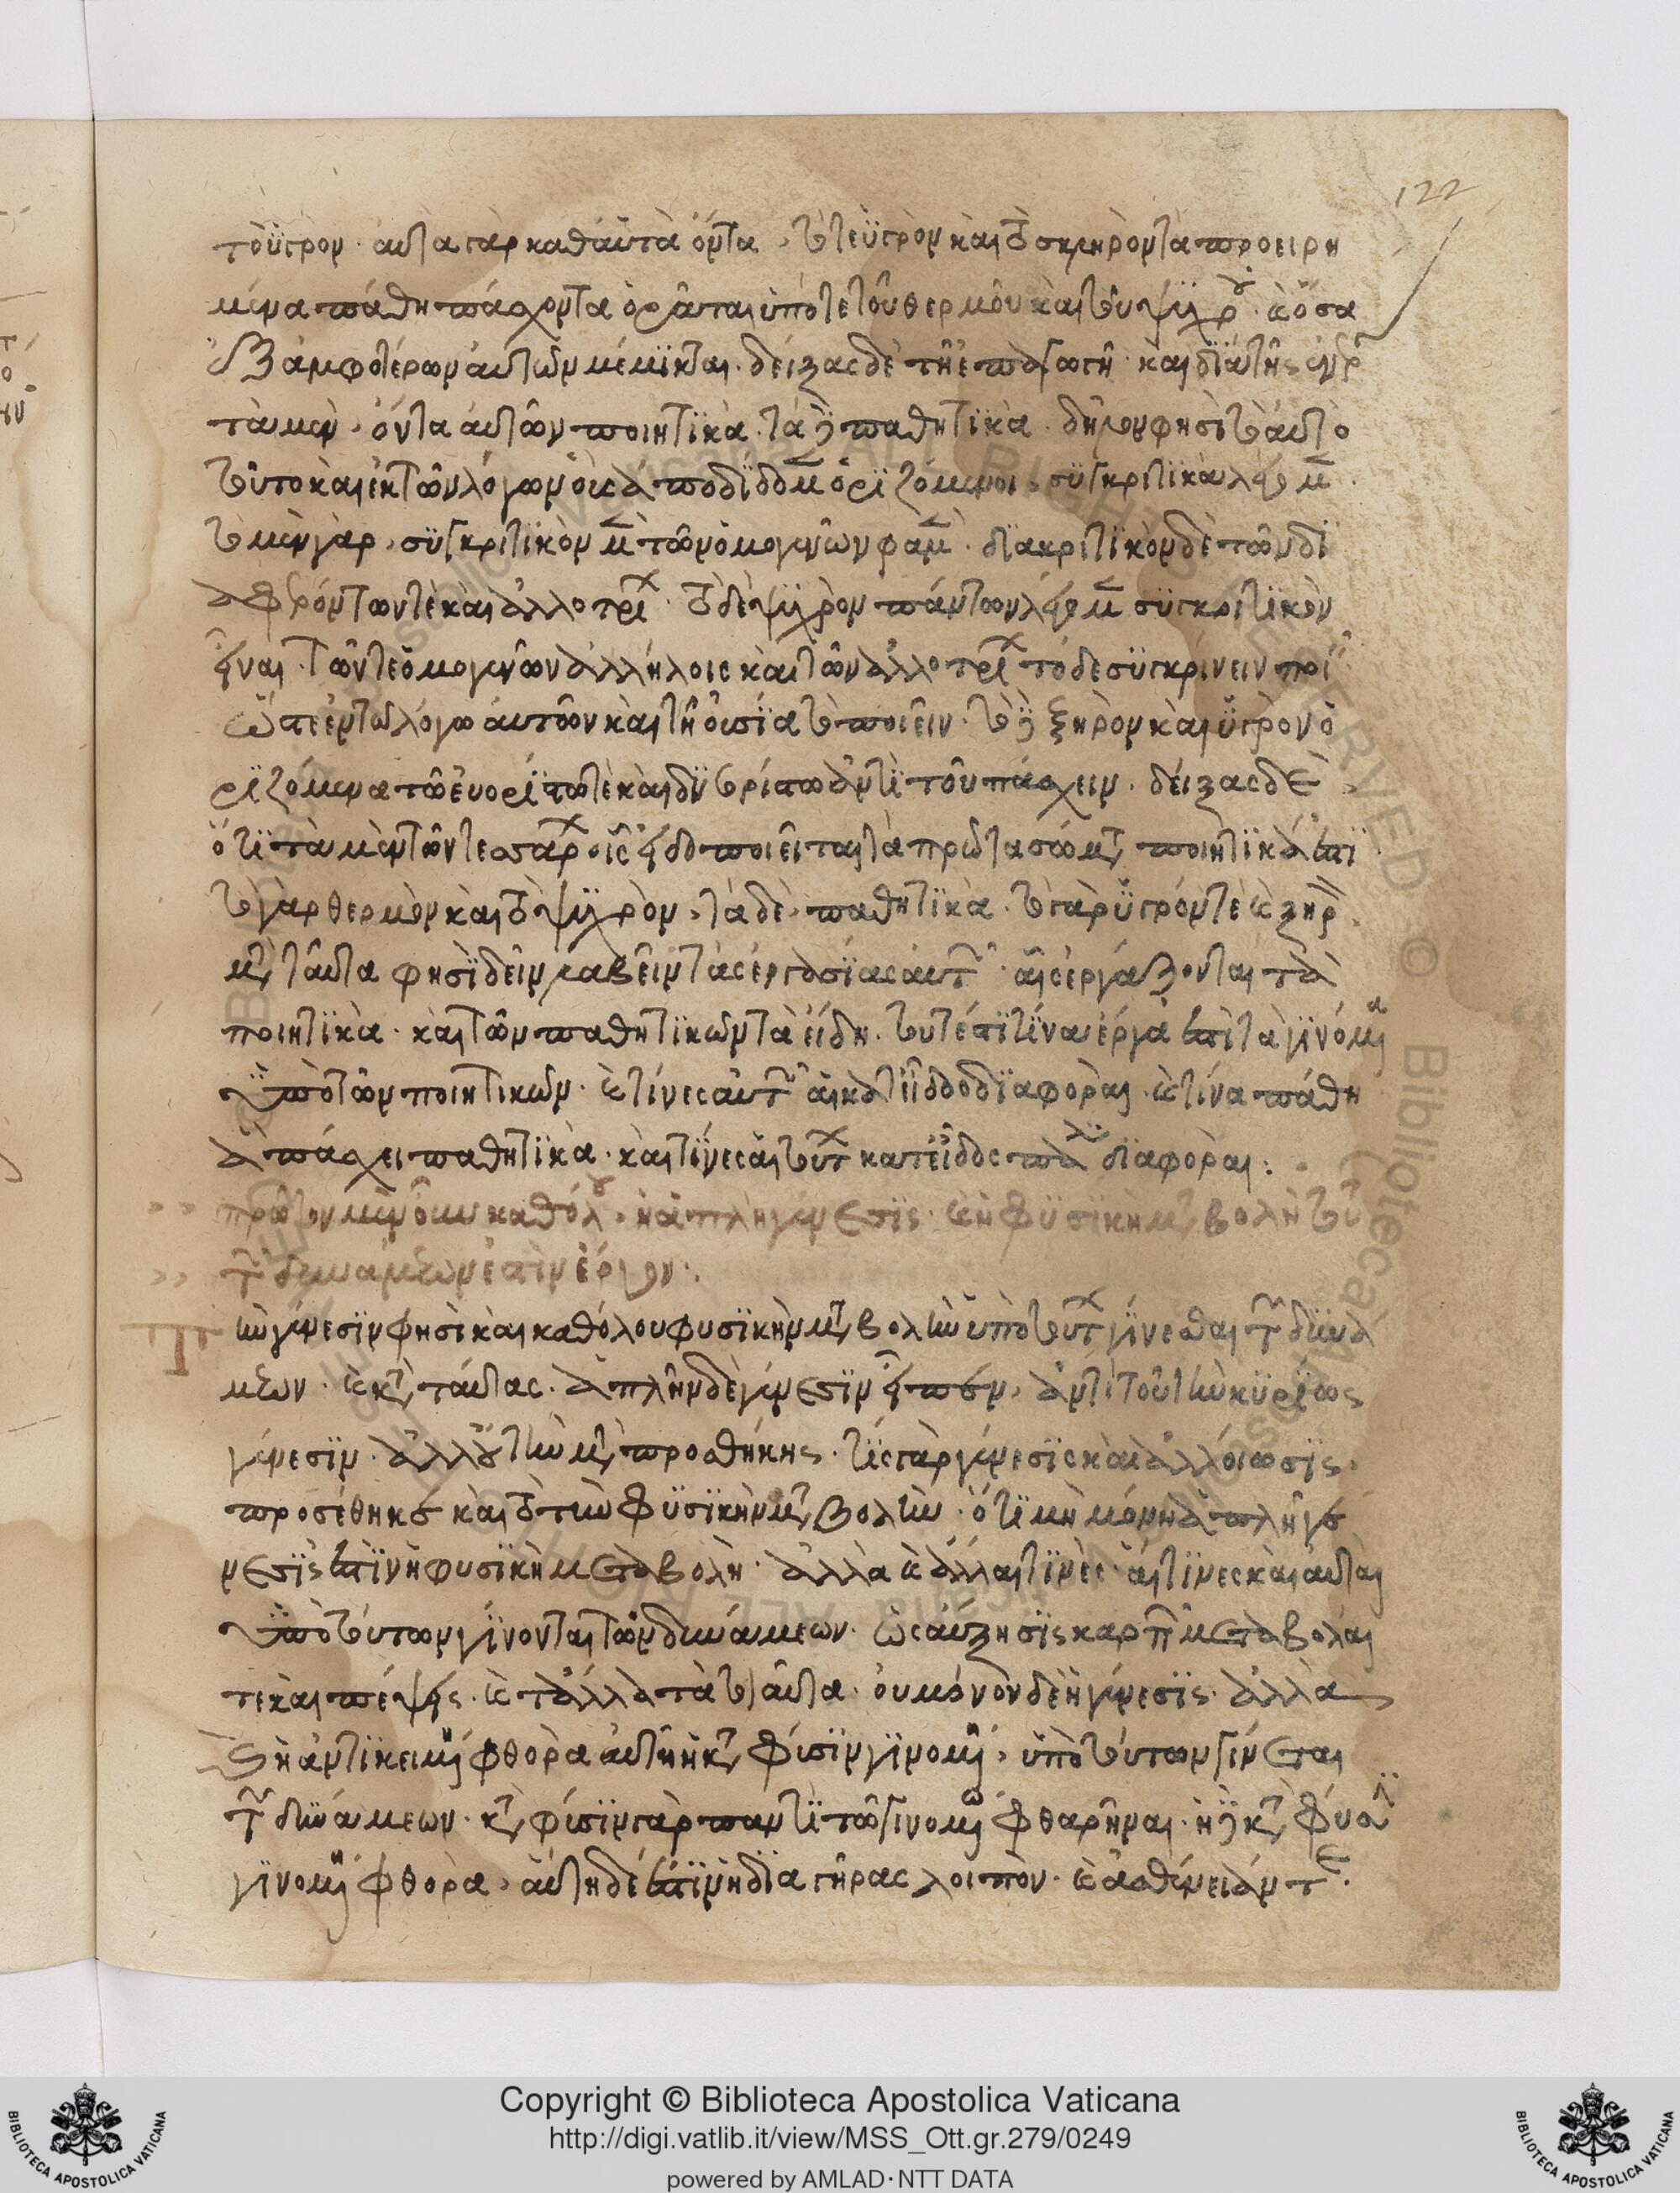 122
τὸ ὑγρόν. αὐτὰ γὰρ καθ' αὑτὰ ὄντα, τό τε ὑγρὸν καὶ τὸ σκληρὸν τὰ προειρη
μένα πάθη πάσχοντα ὁρᾶται ὑπό τε τοῦ θερμοῦ καὶ τοῦ ψυχροῦ. καὶ ὅσα
ἐξ ἀμφοτέρων αὐτῶν μέμικται. δείξας δὲ τῇ ἐπαγωγῇ καὶ διὰ τῆς
τὰ μὲν, ὄντα αὐτῶν ποιητικὰ. τὰ δὲ παθητικὰ. δῆλόν φησι τὸ αὐτὸ
τοῦτο καὶ ἐκ τῶν λόγων οἷς ἀποδίδομεν ὁριζόμενοι συγκριτικὰ λέγομεν.
τὸ μὲν γὰρ, συγκριτικὸν μὲν τῶν ὁμογενῶν φαμὲν. διακριτικὸν δὲ τῶν δι
αφερόντων τὲ καὶ ἀλλοτρίων. τὸ δὲ ψυχρὸν πάντων λέγομεν συγκριτικὸν
εἶναι. τῶν τε ὁμογενῶν ἀλλήλοις καὶ τῶν ἀλλοτρίων τὸ δὲ συγκρίνειν ποιεῖν
ὥστε ἐν τῷ λόγῳ αὐτῶν καὶ τῇ οὐσίᾳ τὸ ποιεῖν. τὸ δὲ ξηρὸν καὶ ὑγρὸν ὁ
ριζόμενα τῷ εὐορίστῳ τὲ καὶ δυσορίστῳ ἀντὶ τοῦ πάσχειν. δείξας δὲ
ὅτι τὰ μὲν τῶν τεσσάρων οἷς εἰδοποιεῖται τὰ πρῶτα σώματα ποιητικά ἐστι
τὸ γὰρ θερμὸν καὶ τὸ ψυχρὸν, τὰ δὲ, παθητικὰ. τὸ γὰρ ὑγρόν τὲ καὶ ξηρὸν.
μετὰ ταῦτα φησὶ δεῖν λαβεῖν τὰς ἐργασίας αὐτῶν αἷς ἐργάζονται τὰ
ποιητικὰ. καὶ τῶν παθητικῶν τὰ εἴδη. τουτέστι τίνα ἔργα ἐστὶ τὰ γινόμενα
ὑπὸ τῶν ποιητικῶν. καὶ τίνες αὐτῶν αἱ κατ' εἶδος διαφοραὶ. καὶ τίνα πάθη
ἃ πάσχει παθητικὰ. καὶ τίνες αἱ τούτων κατ' εἶδος πάλιν διαφοραὶ:
πρῶτον μὲν οὖν καθόλου, ἡ ἁπλὴ γένεσις. καὶ ἡ φυσικὴ μεταβολὴ τούτων
τῶν δυνάμεών ἐστιν ἔργον:.
Τὴν γένεσίν φησι καὶ καθόλου φυσικὴν μεταβολὴν ὑπὸ τούτων γίνεσθαι τῶν δυνά
μεων. καὶ κατὰ ταύτας. ἁπλῆν δὲ γένεσιν εἶπεν, ἀντὶ τοῦ τὴν κυρίως
γένεσιν. ἀλλ' οὐ τὴν μετὰ προσθήκης. τίς γὰρ γένεσις καὶ ἀλλοίωσις.
προσέθηκε καὶ τὸ τὴν φυσικὴν μεταβολὴν. ὅτι μὴ μόνη ἁπλῆ γέ
νεσίς ἐστιν ἡ φυσικὴ μεταβολὴ. ἀλλὰ καὶ ἄλλαι τινὲς. αἵτινες καὶ αὐταὶ
ὑπὸ τούτων γίνονται τῶν δυνάμεων. ὡς αὔξησις καρπῶν μεταβολαί
τε καὶ πέψεις. καὶ τἄλλα τὰ τοιαῦτα. οὐ μόνον δὲ ἡ γένεσις. ἀλλὰ
καὶ ἡ ἀντικειμένη φθορὰ αὐτῇ ἡ κατὰ φύσιν γινομένη, ὑπὸ τούτων γίνεται
τῶν δυνάμεων. κατὰ φύσιν γὰρ παντὶ τῷ γινομένῳ φθαρῆναι. ἡ δὲ κατὰ φύσιν
γινομένη φθορὰ, αὕτη δέ ἐστιν ἡ διὰ γήρας λοιπὸν. καὶ ἀσθένειαν τε.
Copyright © Biblioteca Apostolica Vaticana
http://digi.vatlib.it/view/MSS_Ott.gr.279/0249
powered by AMLAD·NTT DATA